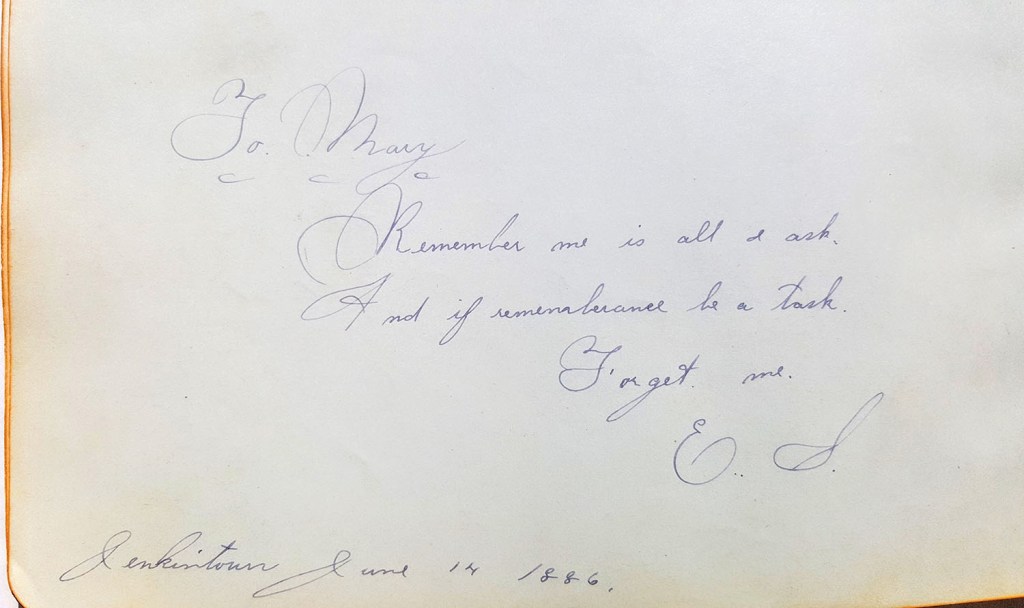 To. Mary
Remember me is all I ask.
And if rememberance be a task.
Forget. me.
E.. S.
Jenkintown June 14 1886.